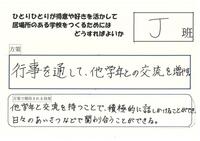 ひとりひとりが得意や好きを活かして
居場所のある学校をつくるためには
どうすればよいか
J 班
方策
行事を通して、他学年との交流を増やす
方策で期待される効果
他学年と交流を持つことで、積極的に話しかけることができ、
日々のあいさつなどで関わり合うことができる。